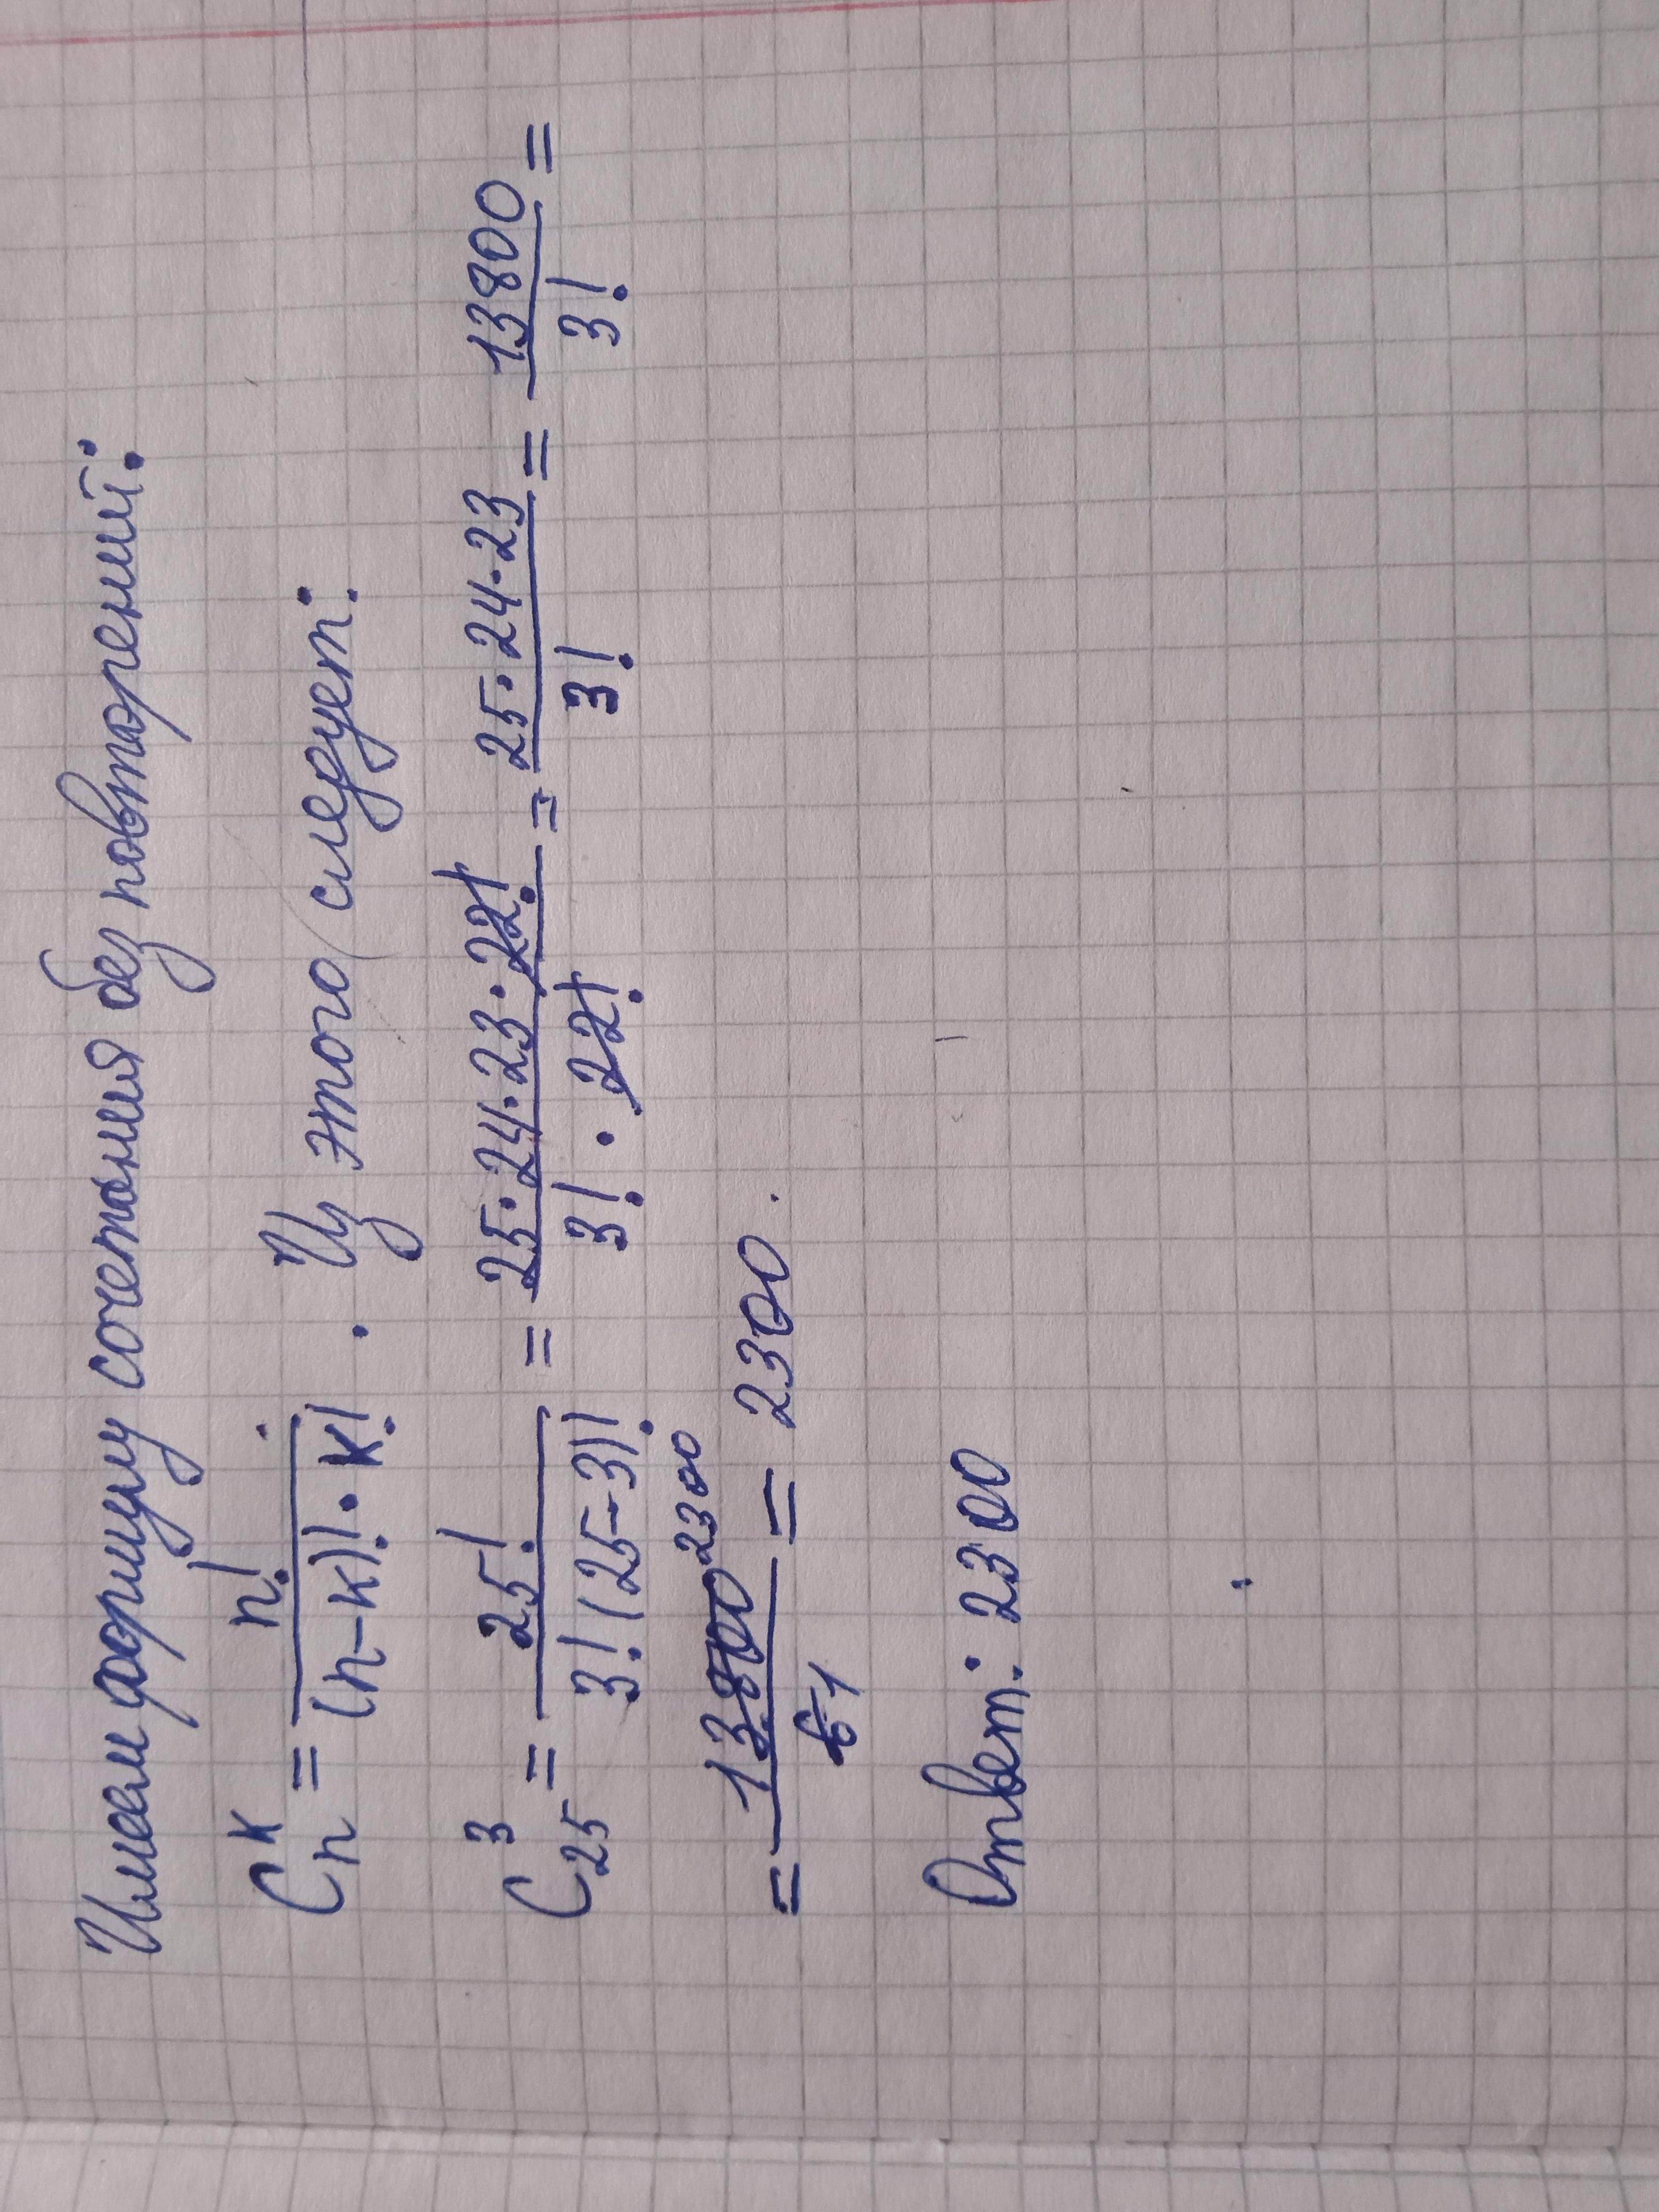 Имеем формулу сочетания без повторений:
C_n^k = n! / (n-k)! · k! . Из этого следует:
C_25^3 = 25! / 3!(25-3)! = 25·24·23·22! / 3! · 22! = 25·24·23 / 3! = 13800 / 3! =
= 13800 2300 / 6 1 = 2300.
Ответ: 2300